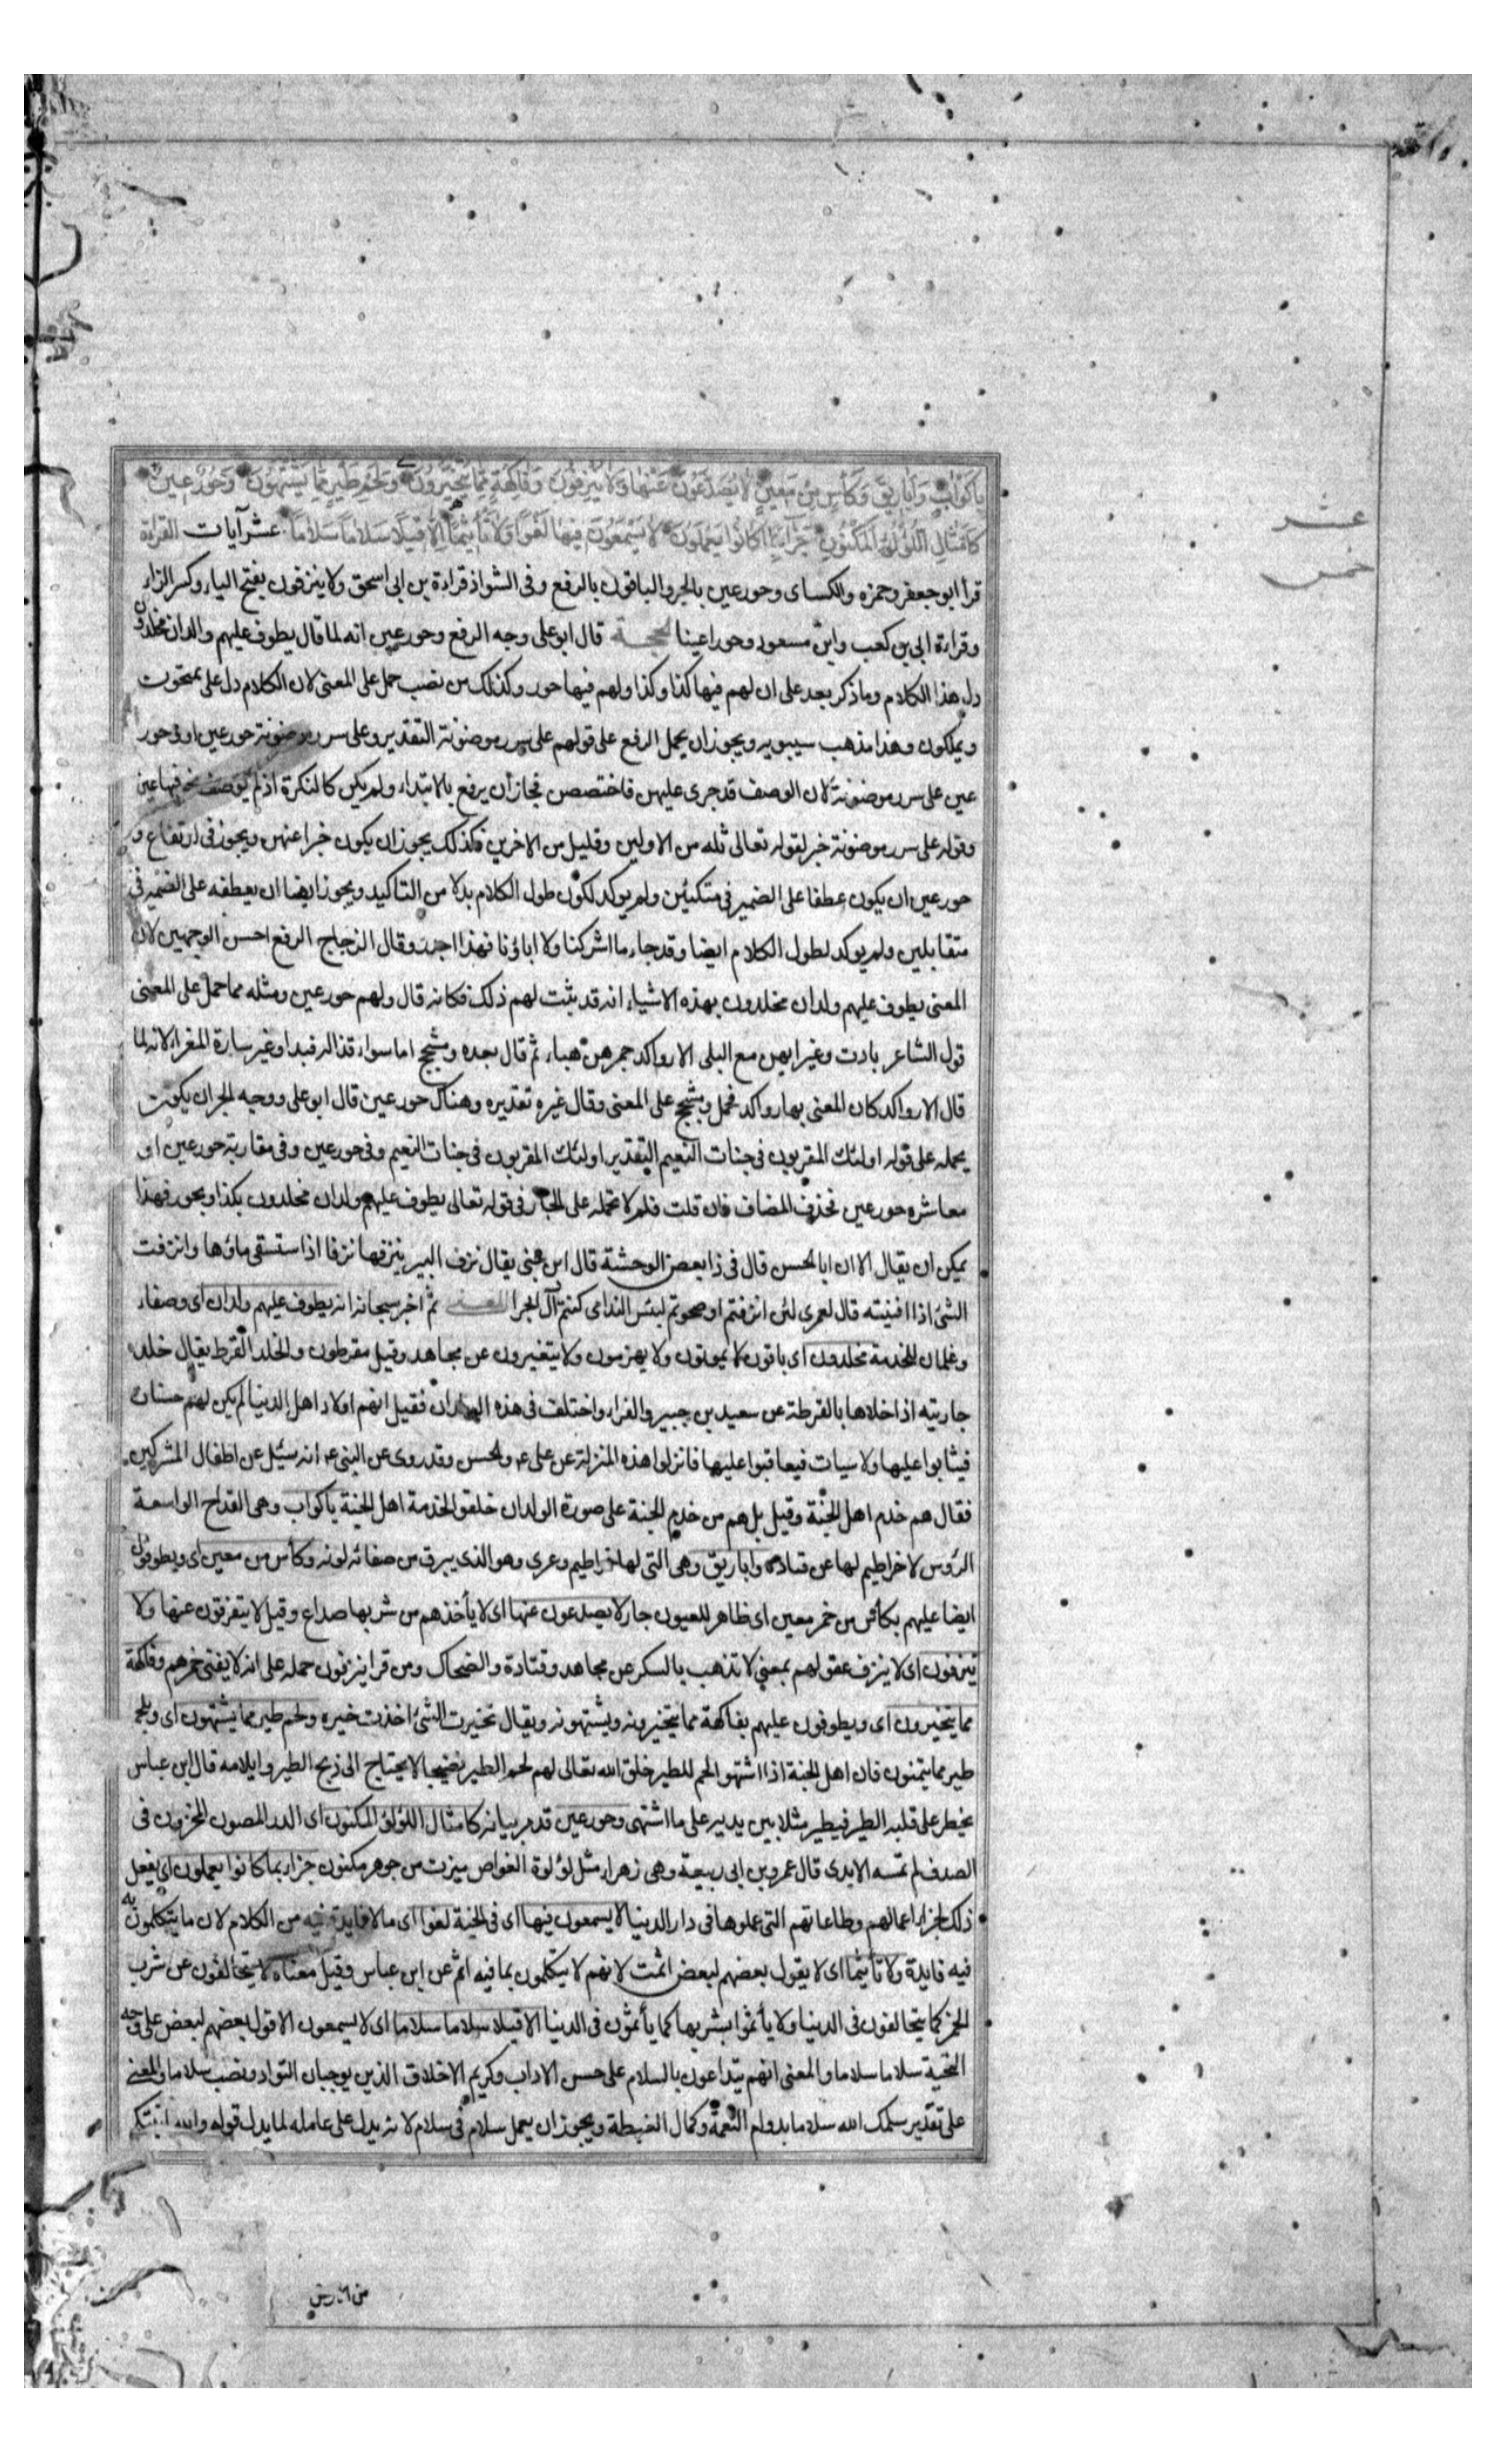 باكواب واباريق وكأس من معين لا يصدعون عنها ولا ينزفون وفاكهة مما يتخيرون ولحم طير مما يشتهون وحور عين
كامثال اللؤلؤ المكنون جزاء بما كانوا يعملون لا يسمعون فيها لغوا ولا تأثيما الا قيلا سلاما سلاما عشر آيات القراءة
عشر
خمس
قرأ ابو جعفر وحمزه والكساى وحور عين بالجر والباقون بالرفع وفى الشواذ قراءة بن ابى اسحق ولا ينزفون بفتح الياء وكسر الزاء
وقراءة ابى بن كعب وابن مسعود وحورا عينا الحجة قال ابو على وجه الرفع وحور عين انه لما قال يطوف عليهم والدان مخلدون
دل هذا الكلام وما ذكر بعد على ان لهم فيها كذا وكذا ولهم فيها حور وكذلك من نصب حمل على المعنى لان الكلام دل على يمنحون
ويملكون وهذا مذهب سيبويه ويجوز ان يحمل الرفع على قولهم على سرر موضونة التقدير وعلى سرر موضونة حور عين او وحور
عين على سرر موضونة لان الوصف قد جرى عليهن فاختصص فجاز أن يرفع بالابتداء ولم يكن كالنكرة اذ لم يوصف نحو فيها عين
وقوله على سرر موضونة خبر لقوله تعالى ثله من الاولين وقليل من الاخرين فكذلك يجوز ان يكون خبرا عنهن ويجوز فى ارتفاع و
حور عين ان يكون عطفا على الضمير فى متكئين ولم يوكد لكون طول الكلام بدلا من التاكيد ويجوز ايضا ان يعطفه على الضمير فى
متقابلين ولم يوكد لطول الكلام ايضا وقد جاء ما اشركنا ولا اباؤنا فهذا اجدر وقال الزجاج الرفع احسن الوجهين لان
المعنى يطوف عليهم ولدان مخلدون بهذه الاشياء انه قد يثبت لهم ذلك فكانه قال ولهم حور عين ومثله مما حمل على المعنى
قول الشاعر بادت وغير ايهن مع البلى الا رواكد جمرهن هباء ثم قال بعده ومشجج اما سواء قذاله فبدا وغير سارة المغراء لانه لما
قال الا رواكد كان المعنى بها رواكد فحمل ومشجج على المعنى وقال غيره تقديره وهناك حور عين قال ابو على ووجه الجر ان يكون
يحمله على قوله اولئك المقربون فى جنات النعيم التقدير اولئك المقربون فى جنات النعيم وفى حور عين وفى مقاربة حور عين او
معاشره حور عين فحذف المضاف فان قلت فلم لا تحمله على الجار فى قوله تعالى يطوف عليهم ولدان مخلدون بكذا وبحور فهذا
يمكن ان يقال الا ان ابا الحسن قال فى ذا بعض الوحشة قال ابن جنى يقال نزف البير ينزفها نزفا اذا ستسقى ماؤها وانزفت
الشئ اذا افنيته قال لعمرى لئن انزفتم او صحوتم لبئس الندامى كنتم آل ابجرا المعنى ثم اخبر سبحانه انه يطوف عليهم ولدان اى وصفاء
وغلمان للخدمة مخلدون اى باقون لا يموتون ولا يهرمون ولا يتغيرون عن مجاهد وقيل مقرطون والخلد القرط يقال خلد
جاريته اذا خلاها بالقرطة عن سعيد بن جبير والفراء واختلف فى هذه الولدان فقيل انهم اولاد اهل الدنيا لم يكن لهم حسنات
فيثابوا عليها ولا سيات فيعاقبوا عليها فانزلوا هذه المنزلة عن على ع والحسن وقد روى عن النبى ع انه سئل عن اطفال المشركين
فقال هم خدم اهل الجنة وقيل بل هم من خدم الجنة على صورة الولدان خلقو الخدمة اهل الجنة باكواب وهى القداح الواسعة
الرؤس لا خراطيم لها عن قتاده واباريق وهى التى لها خراطيم وعرى وهو الذى يبرق من صفائه لونه وكأس من معين اى ويطوفون
ايضا عليهم بكأس من خمر معين اى ظاهر للعيون جار لا يصدعون عنها اى لا يأخذهم من شربها صداع وقيل لا يتفرقون عنها ولا
ينزفون اى لا ينزف عقولهم بمعنى لا تذهب بالسكر عن مجاهد وقتادة والضحاك ومن قرا ينزفون حمله على انه لا يفنى خمرهم وفاكهة
مما يتخيرون اى ويطوفون عليهم بفاكهة مما يتخيرونه ويشتهونه ويقال تخيرت الشئ اخذت خيره ولحم طير مما يشتهون اى وبلحم
طير مما يتمنون فان اهل الجنة اذا اشتهو الحم للطير خلق الله تعالى لهم لحم الطير نضيجا لا يحتاج الى ذبح الطير وايلامه قال ابن عباس
يخطر على قلبه الطير فيطير مثلا بين يديه على ما اشتهى وحور عين قد مر بيانه كامثال اللؤلؤ المكنون اى الدر المصون المخزون فى
الصدف لم تمسه الايدى قال عمر وبن ابى ربيعة وهى زهراء مثل لؤلوة الغواص ميزت من جوهر مكنون جزاء بما كانوا يعملون اى يفعل
ذلك لجزاء اعمالهم وطاعاتهم التى عملوها فى دار الدنيا لا يسمعون فيها اى فى الجنة لغوا اى ما لا فايدة فيه من الكلام لان ما يتكلمون به
فيه فايدة ولا تأثيما اى لا يقول بعضهم لبعض اثمت لانهم لا يتكلمون بما فيه اثم عن ابن عباس وقيل معناه لا يتخالفون عن شرب
الخمر كما يتخالفون فى الدنيا ولا يأثموا بشربها كما يأثمون فى الدنيا الا قيلا سلاما سلاما اى لا يسمعون الا قول بعضهم لبعض على وجه
التحية سلاما سلاما والمعنى انهم يتداعون بالسلام على حسن الاداب وكريم الاخلاق الذين يوجبان التواد ونصب سلاما والمعنى
على تقدير سلمك الله سلاما بدوام النعمة وكمال الغبطة ويجوز ان يعمل سلام فى سلام لانه يدل على عامله لما يدل قوله والله انبتكم